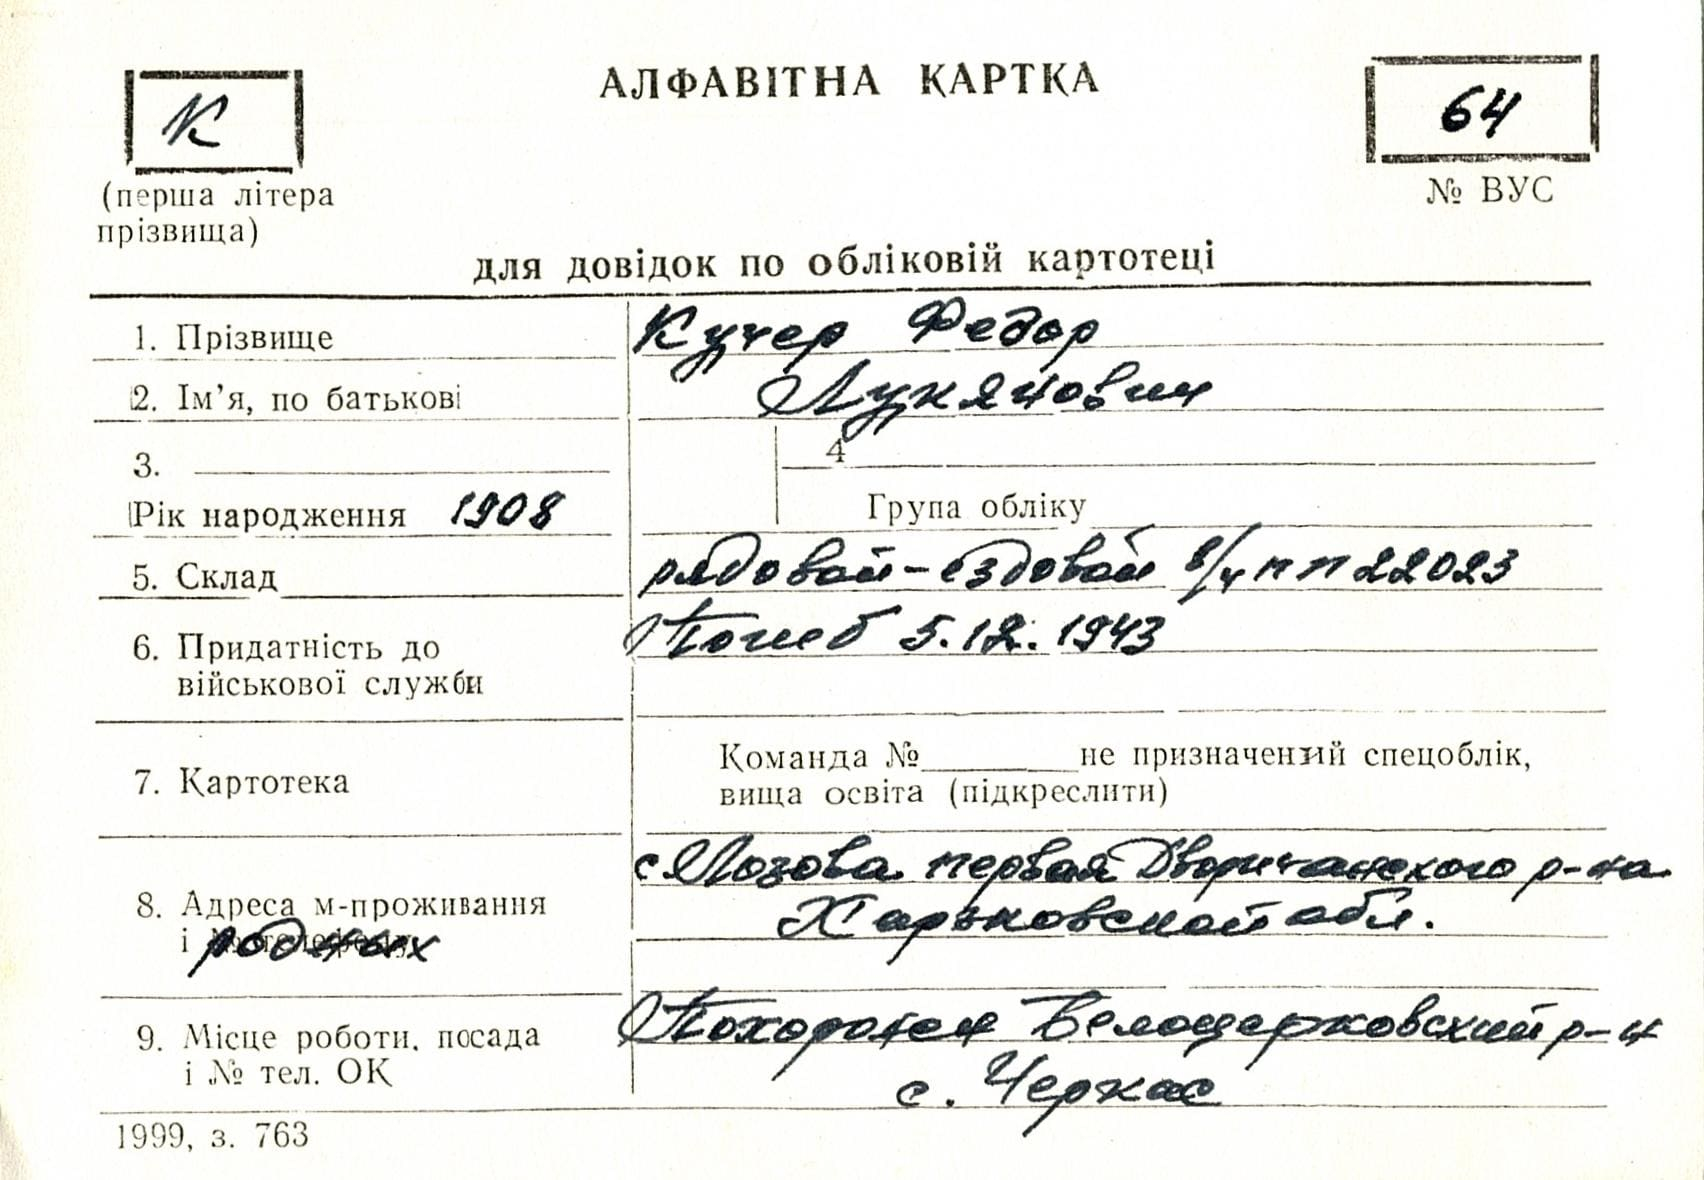 АЛФАВІТНА КАРТКА
К
64
(перша літера
прізвища)
№ ВУС
для довідок по обліковій картотеці
1. Прізвище Кучер Федор
2. Ім’я, по батькові Лукянович
3.
4
Рік народження 1908 Група обліку
5. Склад рядовой-ездовой в/ч пп 22023
6. Придатність до Погиб 5.12.1943
військової служби
Команда № не призначений спецоблік,
7. Картотека
вища освіта (підкреслити)
с Лозова первая Двуричанского р-на
8. Адреса м-проживання Харьковской обл.
і родных
9. Місце роботи, посада Похоронен Белоцерковский р-н
і № тел. ОК с. Черкас
1999, з. 763